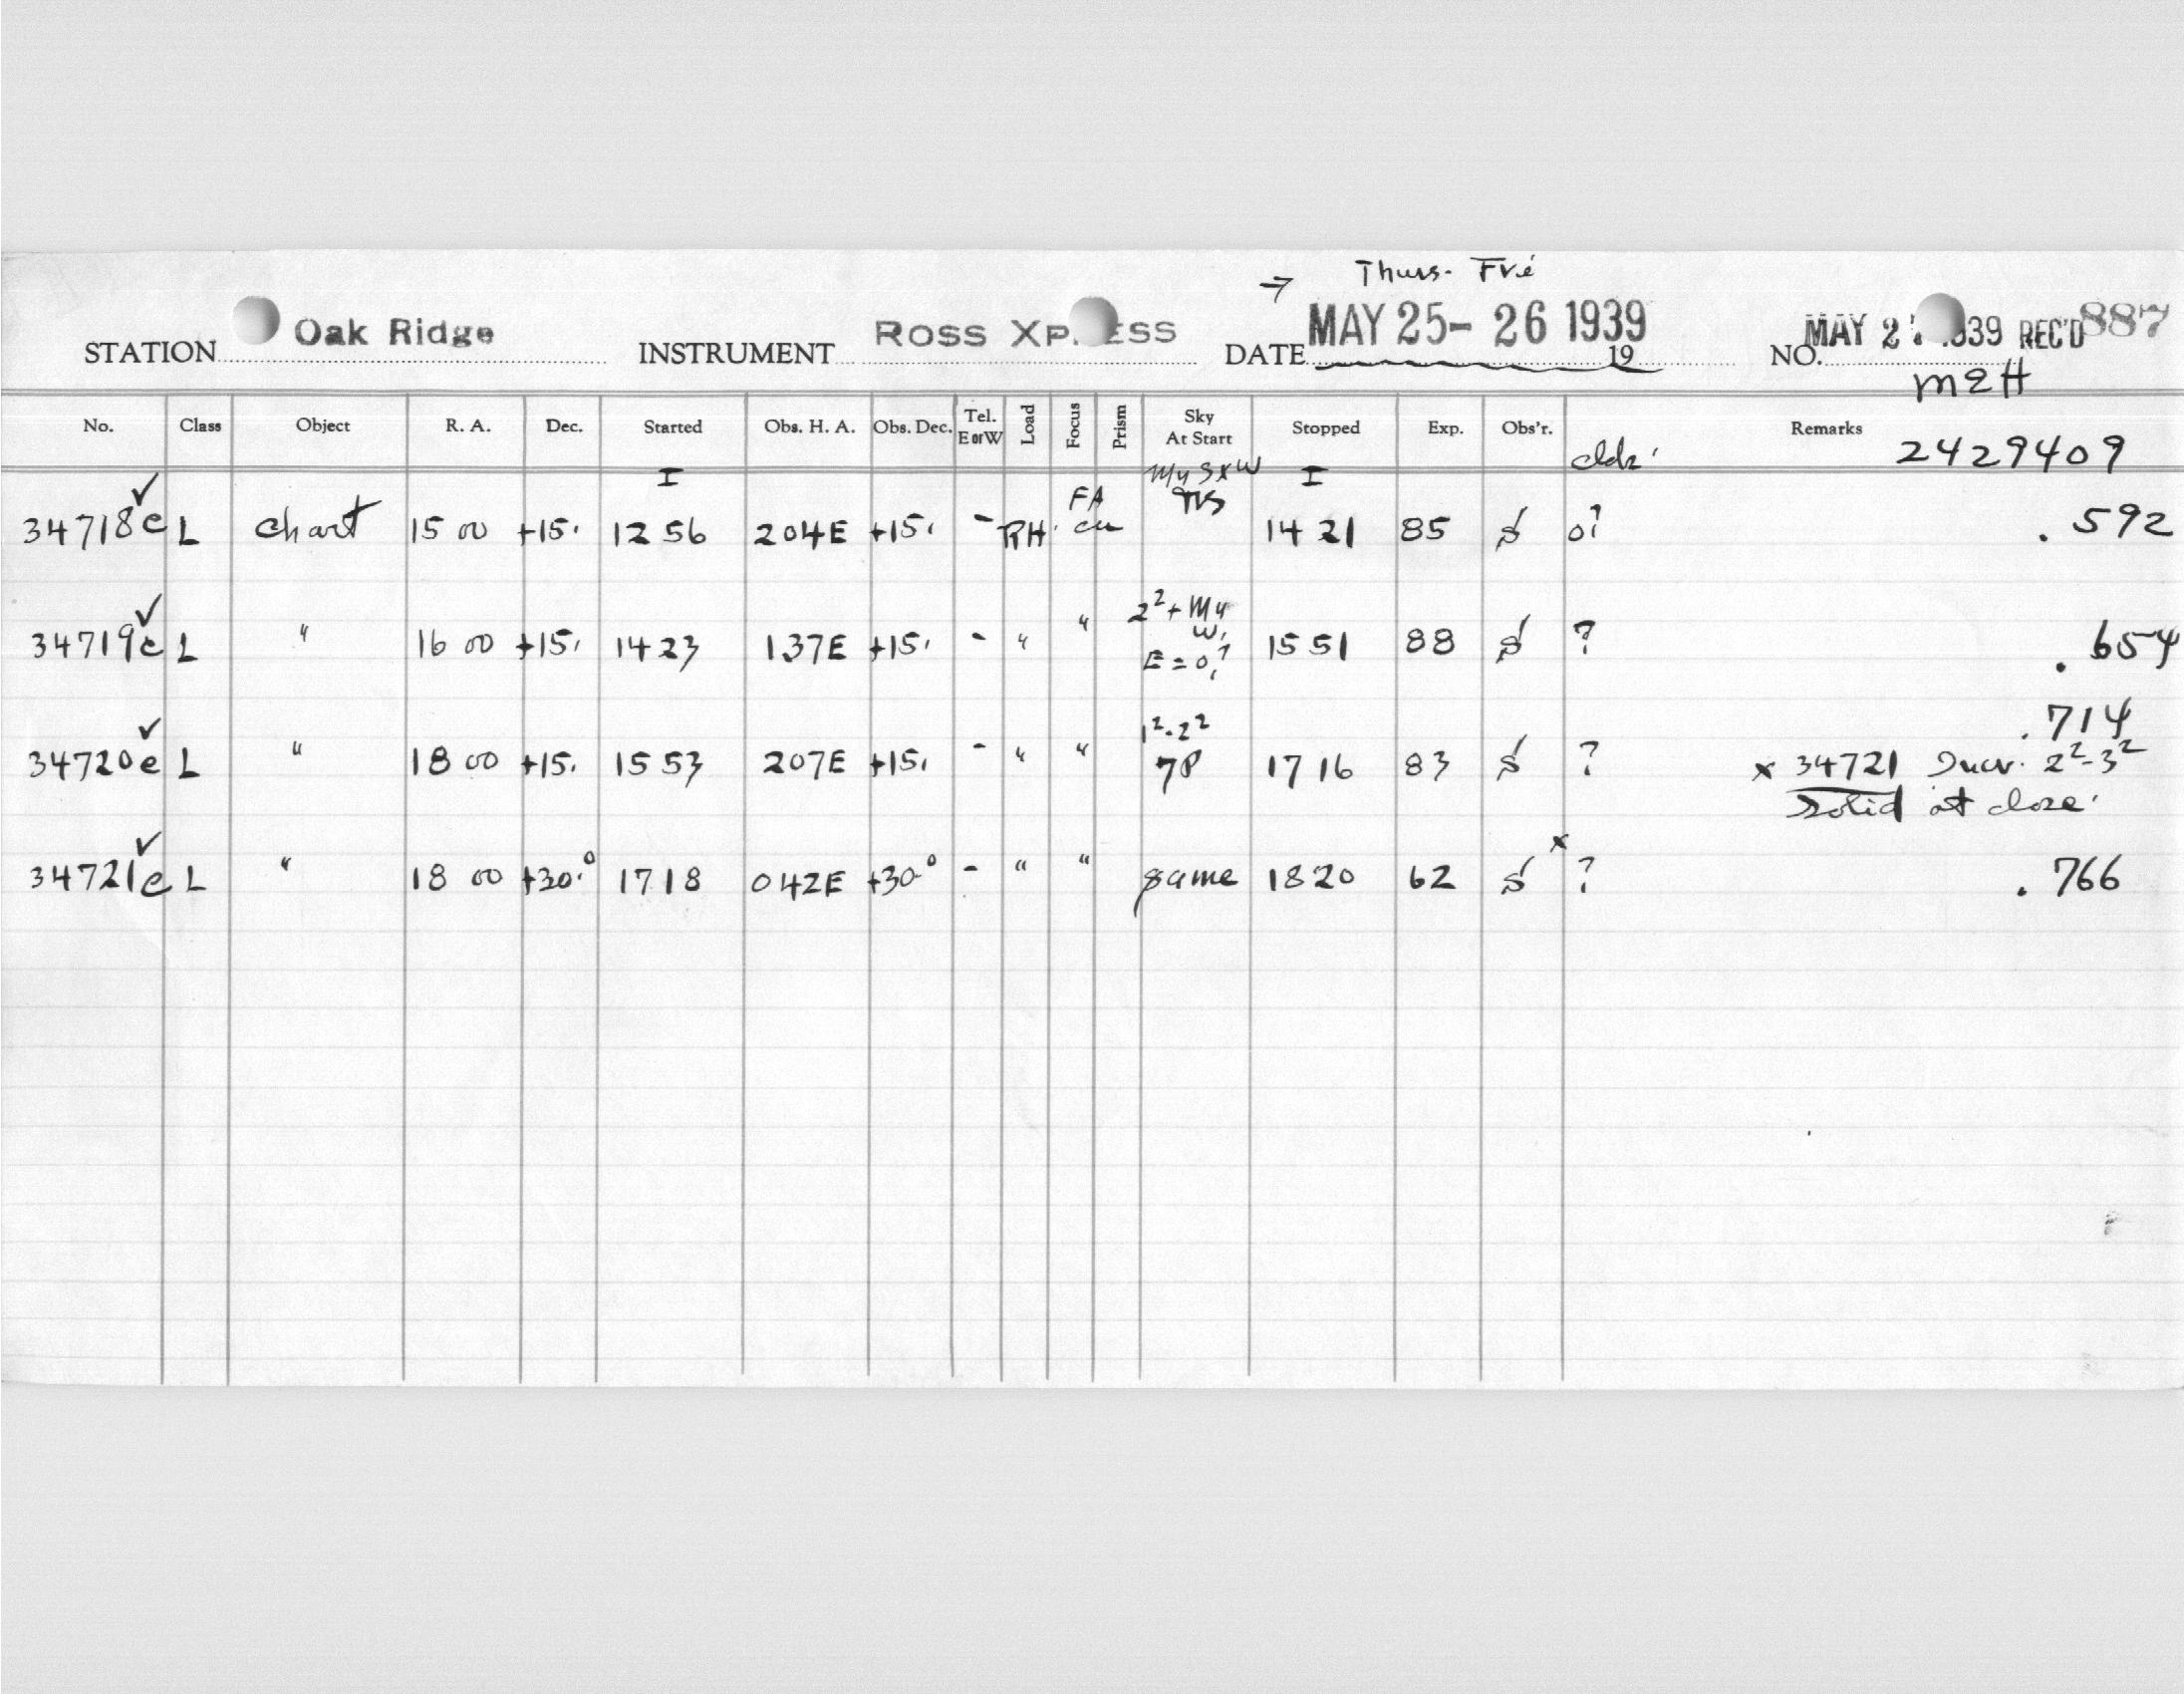 → Thurs. Fri
STATION Oak Ridge INSTRUMENT ROSS XP ESS DATE MAY 25- 26 1939 19 NO. MAY 2 939 REC'D 887
No. Class Object R. A. Dec. Started Obs. H. A. Obs. Dec. Tel. E or W Load Focus Prism Sky At Start Stopped Exp. Obs'r. Remarks
I I 2429409
34718e ✓ L chart 15 00 +15. 12 56 204E +15. - RH 14 21 85 0? .592
34719e ✓ L " 16 00 +15. 14 23 137E +15. - " " 2²+ My W, E = 0,? 15 51 88 ? .654
34720e ✓ L " 18 00 +15. 15 53 207E +15. - " " 1²-2² 17 16 83 ? .714
x 34721 Incr. 2²-3²
solid at close.
34721e ✓ L " 18 00 +30.° 17 18 042E +30.° - " " same 18 20 62 x ? .766